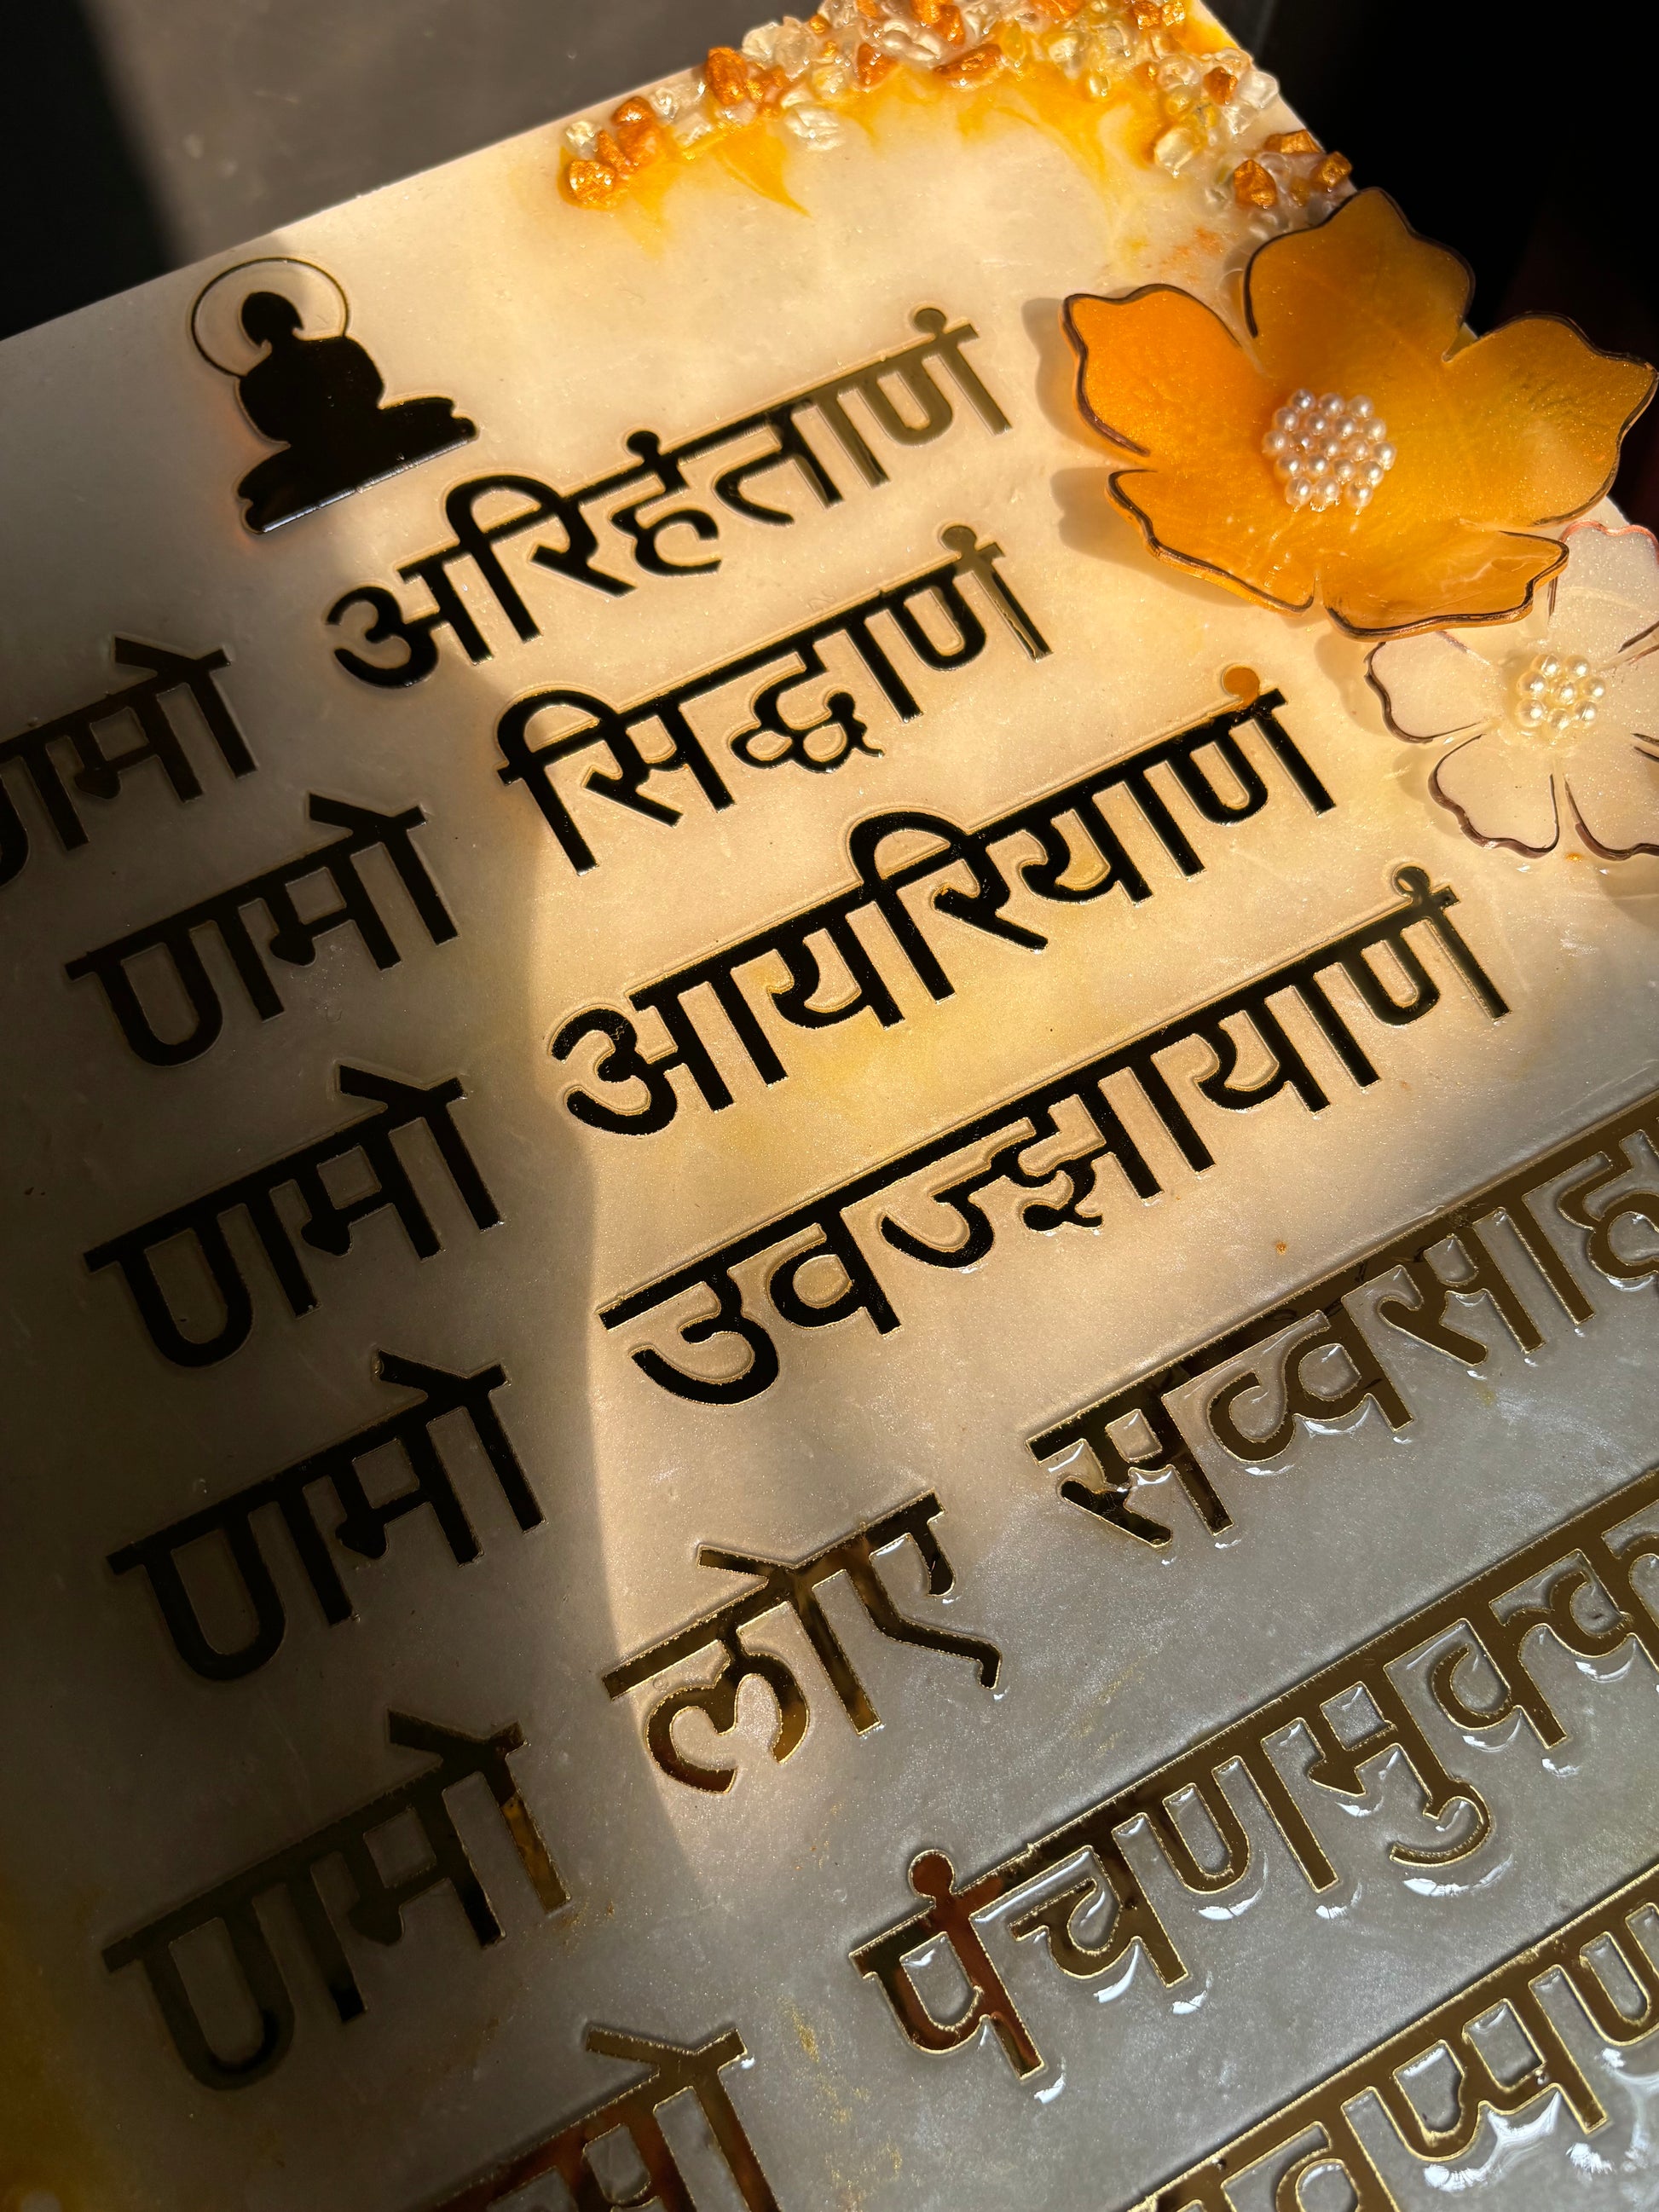 णमो अरिहंताणं
णमो सिद्धाणं
णमो आयरियाणं
णमो उवज्झायाणं
णमो लोए सव्वसाह
पंचणमुक्क